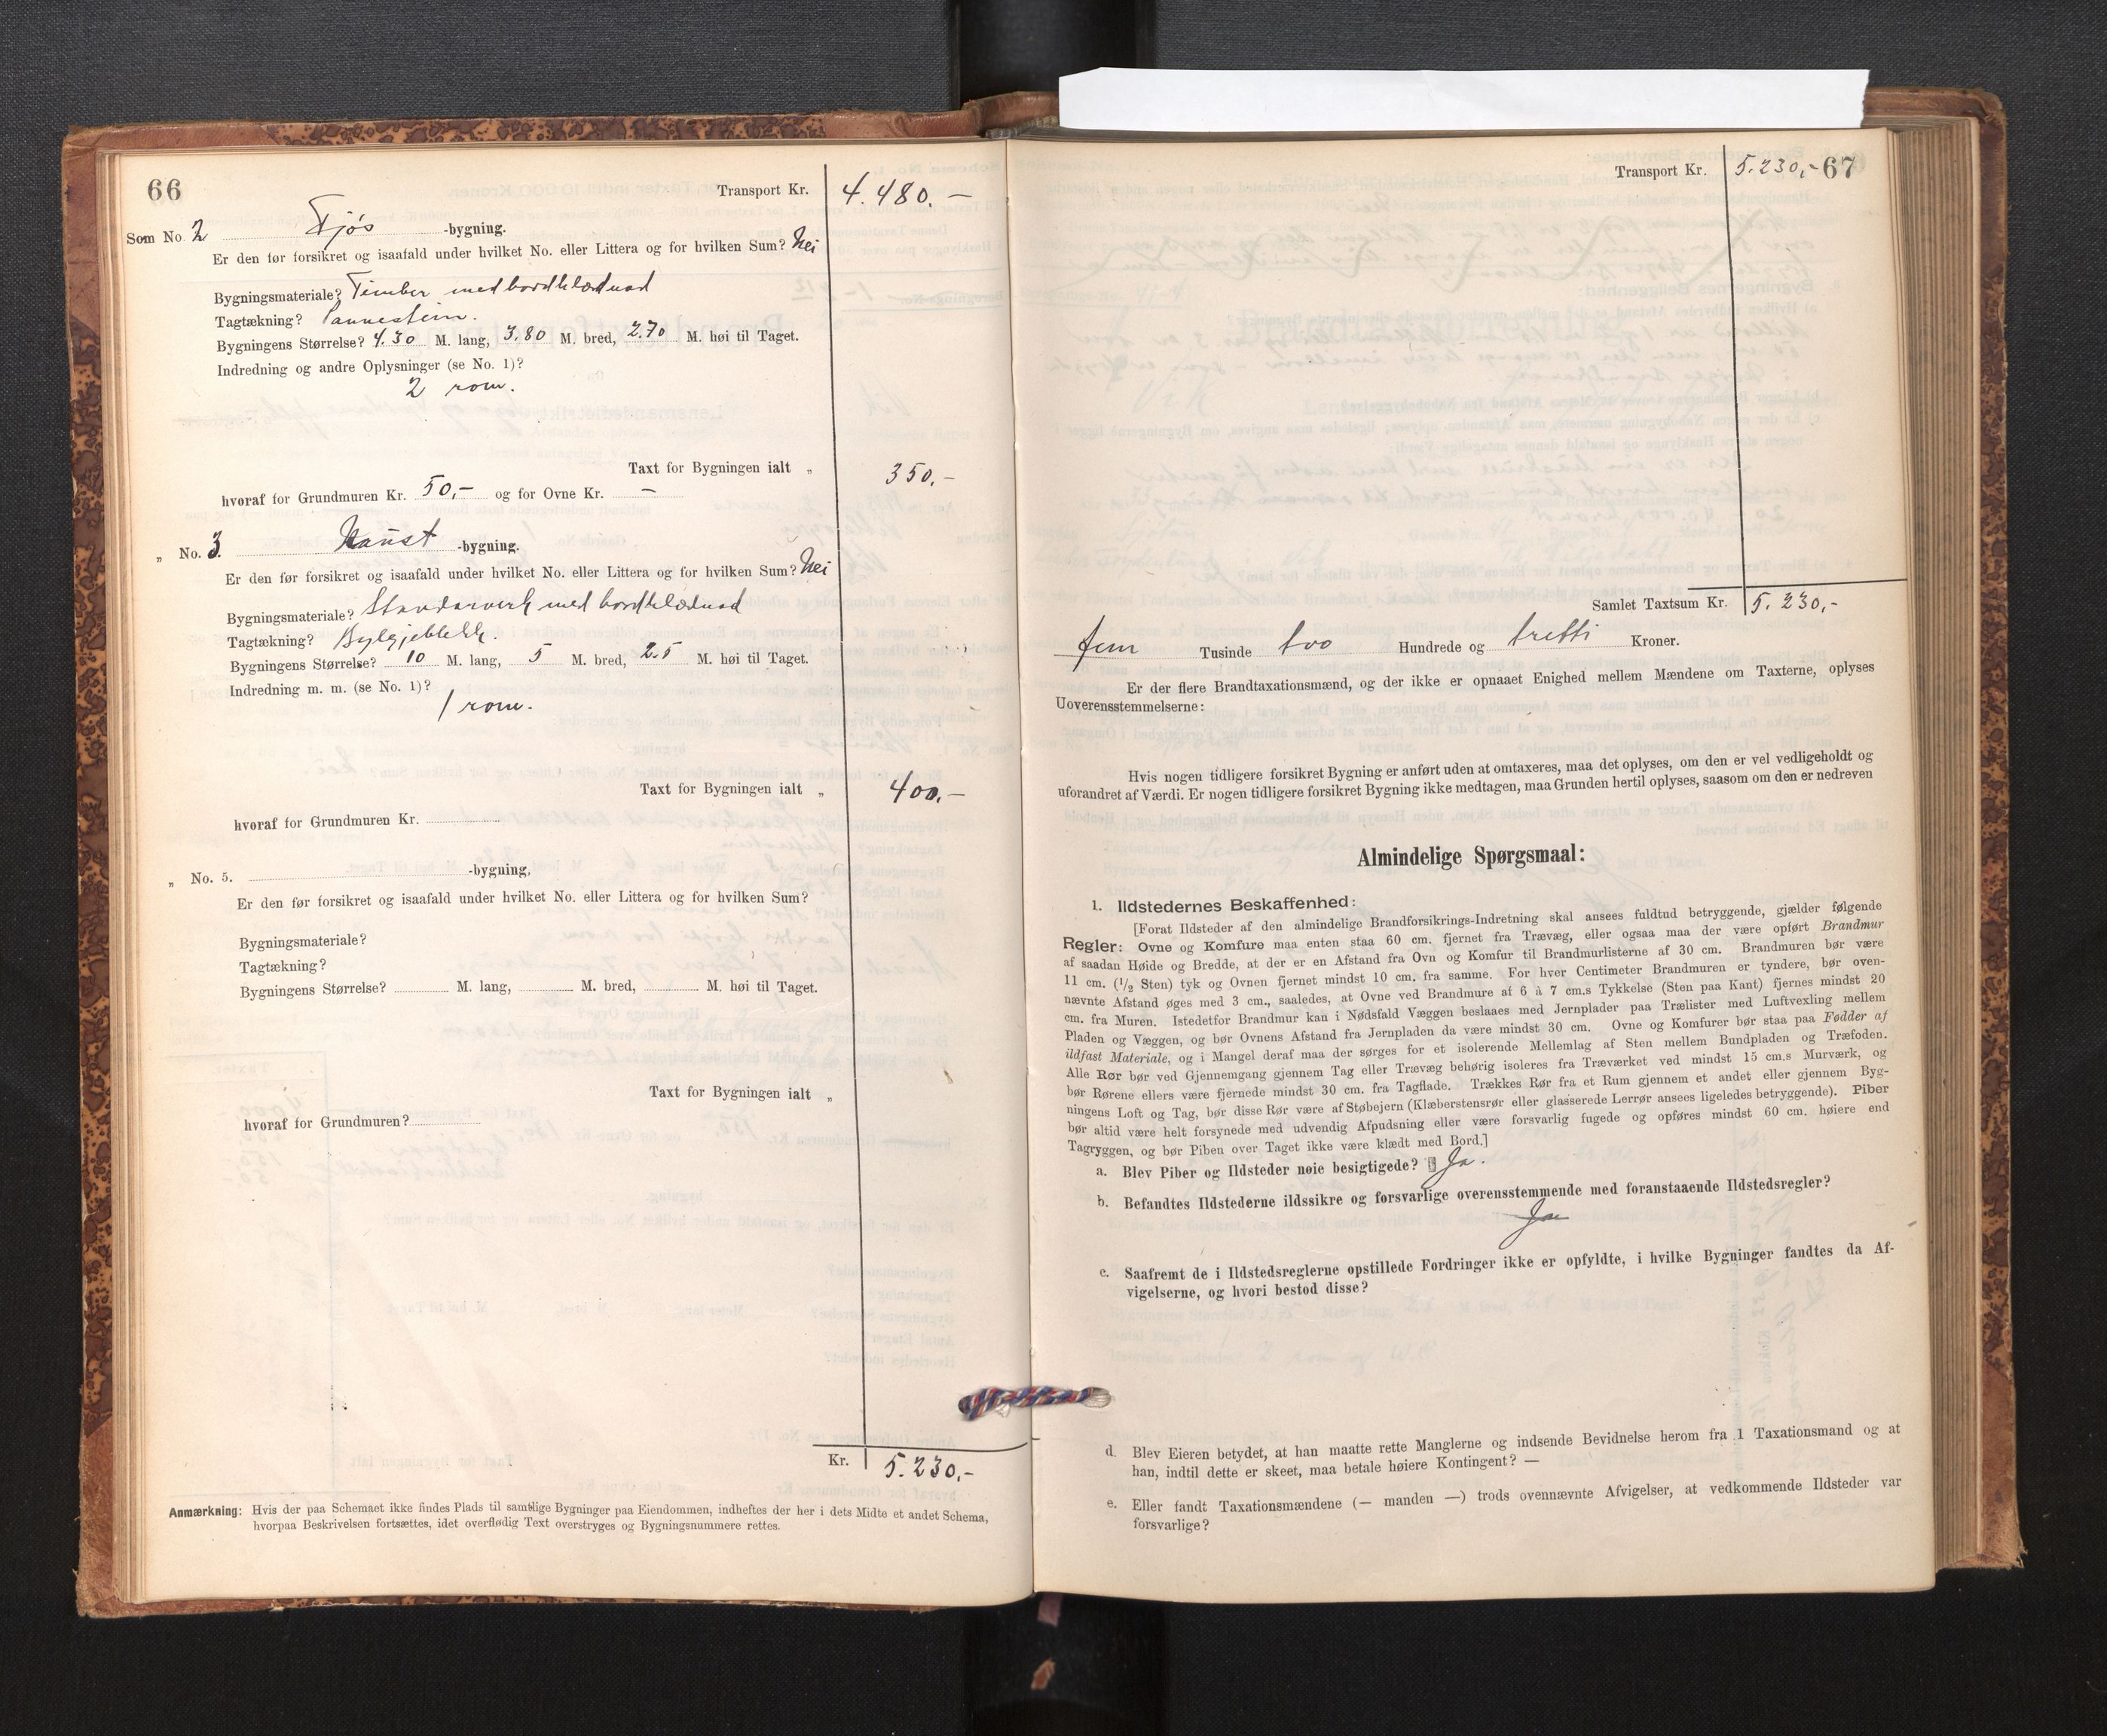 66
Transport Kr. 4.480.-
Som No. 2 Fjøs -bygning.
Er den før forsikret og isaafald under hvilket No. eller Littera og for hvilken Sum? Nei
Bygningsmateriale? Timber med bordklædnad
Tagtækning? Pannestein.
Bygningens Størrelse? 4.30 M. lang, 3.80 M. bred, 2.70 M. høi til Taget.
Indredning og andre Oplysninger (se No. 1)?
2 rom.
Taxt for Bygningen ialt „ 350.-
hvoraf for Grundmuren Kr. 50,- og for Ovne Kr. -
„ No. 3. Naust -bygning.
Er den før forsikret og isaafald under hvilket No. eller Littera og for hvilken Sum? Nei
Bygningsmateriale? Standarverk med bordklædnad
Tagtækning? Bylgjeblekk.
Bygningens Størrelse? 10 M. lang, 5 M. bred, 2.5 M. høi til Taget.
Indredning m. m. (se No. 1)?
1 rom.
Taxt for Bygningen ialt „ 400.-
hvoraf for Grundmuren Kr.
„ No. 5. -bygning,
Er den før forsikret og isaafald under hvilket No. eller Littera og for hvilken Sum?
Bygningsmateriale?
Tagtækning?
Bygningens Størrelse? M. lang, M. bred, M. høi til Taget.
Taxt for Bygningen ialt „
hvoraf for Grundmuren?
Kr. 5.230,-
Anmærkning: Hvis der paa Schemaet ikke findes Plads til samtlige Bygninger paa Eiendommen, indheftes der her i dets Midte et andet Schema,
hvorpaa Beskrivelsen fortsættes, idet overflødig Text overstryges og Bygningsnummere rettes.
Transport Kr. 5.230,- 67
Samlet Taxtsum Kr. 5.230,-
fem Tusinde tvo Hundrede og tretti Kroner.
Er der flere Brandtaxationsmænd, og der ikke er opnaaet Enighed mellem Mændene om Taxterne, oplyses
Uoverensstemmelserne:
Hvis nogen tidligere forsikret Bygning er anført uden at omtaxeres, maa det oplyses, om den er vel vedligeholdt og
uforandret af Værdi. Er nogen tidligere forsikret Bygning ikke medtagen, maa Grunden hertil oplyses, saasom om den er nedreven
Almindelige Spørgsmaal:
1. Ildstedernes Beskaffenhed:
[Forat Ildsteder af den almindelige Brandforsikrings-Indretning skal ansees fuldtud betryggende, gjælder følgende
Regler: Ovne og Komfure maa enten staa 60 cm. fjernet fra Trævæg, eller ogsaa maa der være opført Brandmur
af saadan Høide og Bredde, at der er en Afstand fra Ovn og Komfur til Brandmurlisterne af 30 cm. Brandmuren bør være
11 cm. (1/2 Sten) tyk og Ovnen fjernet mindst 10 cm. fra samme. For hver Centimeter Brandmuren er tyndere, bør oven-
nævnte Afstand øges med 3 cm., saaledes, at Ovne ved Brandmure af 6 à 7 cm.s Tykkelse (Sten paa Kant) fjernes mindst 20
cm. fra Muren. Istedetfor Brandmur kan i Nødsfald Væggen beslaaes med Jernplader paa Trælister med Luftvexling mellem
Pladen og Væggen, og bør Ovnens Afstand fra Jernpladen da være mindst 30 cm. Ovne og Komfurer bør staa paa Fødder af
ildfast Materiale, og i Mangel deraf maa der sørges for et isolerende Mellemlag af Sten mellem Bundpladen og Træfoden.
Alle Rør bør ved Gjennemgang gjennem Tag eller Trævæg behørig isoleres fra Træværket ved mindst 15 cm.s Murværk, og
bør Rørene ellers være fjernede mindst 30 cm. fra Tagflade. Trækkes Rør fra et Rum gjennem et andet eller gjennem Byg-
ningens Loft og Tag, bør disse Rør være af Støbejern (Klæberstensrør eller glasserede Lerrør ansees ligeledes betryggende). Piber
bør altid være helt forsynede med udvendig Afpudsning eller være forsvarlig fugede og opføres mindst 60 cm. høiere end
Tagryggen, og bør Piben over Taget ikke være klædt med Bord.]
a. Blev Piber og Ildsteder nøie besigtigede? Ja.
b. Befandtes Ildstederne ildssikre og forsvarlige overensstemmende med foranstaaende Ildstedsregler?
Ja
c. Saafremt de i Ildstedsreglerne opstillede Fordringer ikke er opfyldte, i hvilke Bygninger fandtes da Af-
vigelserne, og hvori bestod disse?
d. Blev Eieren betydet, at han maatte rette Manglerne og indsende Bevidnelse herom fra 1 Taxationsmand og at
han, indtil dette er skeet, maa betale høiere Kontingent? —
e. Eller fandt Taxationsmændene (— manden —) trods ovennævnte Afvigelser, at vedkommende Ildsteder var
forsvarlige?